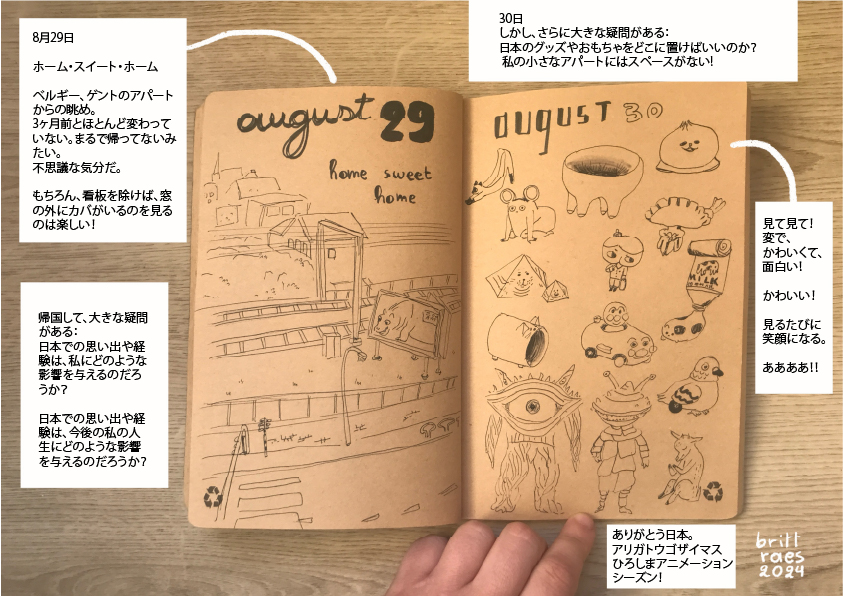 8月29日
ホーム・スイート・ホーム
ベルギー、ゲントのアパート
からの眺め。
3ヶ月前とほとんど変わって
いない。まるで帰ってないみ
たい。
不思議な気分だ。
もちろん、看板を除けば、窓
の外にカバがいるのを見る
のは楽しい！
帰国して、大きな疑問
がある：
日本での思い出や経
験は、私にどのような
影響を与えるのだろ
うか？
日本での思い出や経
験は、今後の私の人
生にどのような影響
を与えるのだろうか？
august 29
home sweet
home
30日
しかし、さらに大きな疑問がある：
日本のグッズやおもちゃをどこに置けばいいのか？
私の小さなアパートにはスペースがない！
august 30
MILK
見て見て！
変で、
かわいくて、
面白い！
かわいい！
見るたびに
笑顔になる。
ああああ！！
ありがとう日本。
アリガトウゴザイマス
ひろしまアニメーション
シーズン！
britt
raes
2024